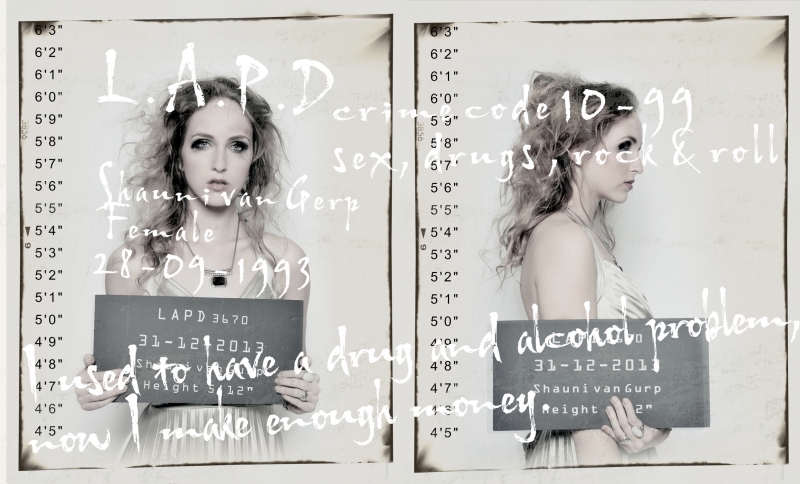 6'3"
6'2"
6'1"
6'0"
5'9"
5'8"
5'7"
5'6"
5'5"
5'4"
5'3"
5'2"
5'1"
5'0"
4'9"
4'8"
4'7"
4'6"
4'5"
L.A.P.D
crime code 10-99
sex, drugs, rock & roll
Shauni van Gerp
Female
28-09-1993
LAPD 3670
31-12-2013
Height 5'12"
6'3"
6'2"
6'1"
6'0"
5'9"
5'8"
5'7"
5'6"
5'5"
5'4"
5'3"
5'2"
5'1"
5'0"
4'9"
4'8"
4'7"
4'6"
4'5"
31-12-2013
Shauni van Gurp
I used to have a drug and alcohol problem,
now I make enough money.